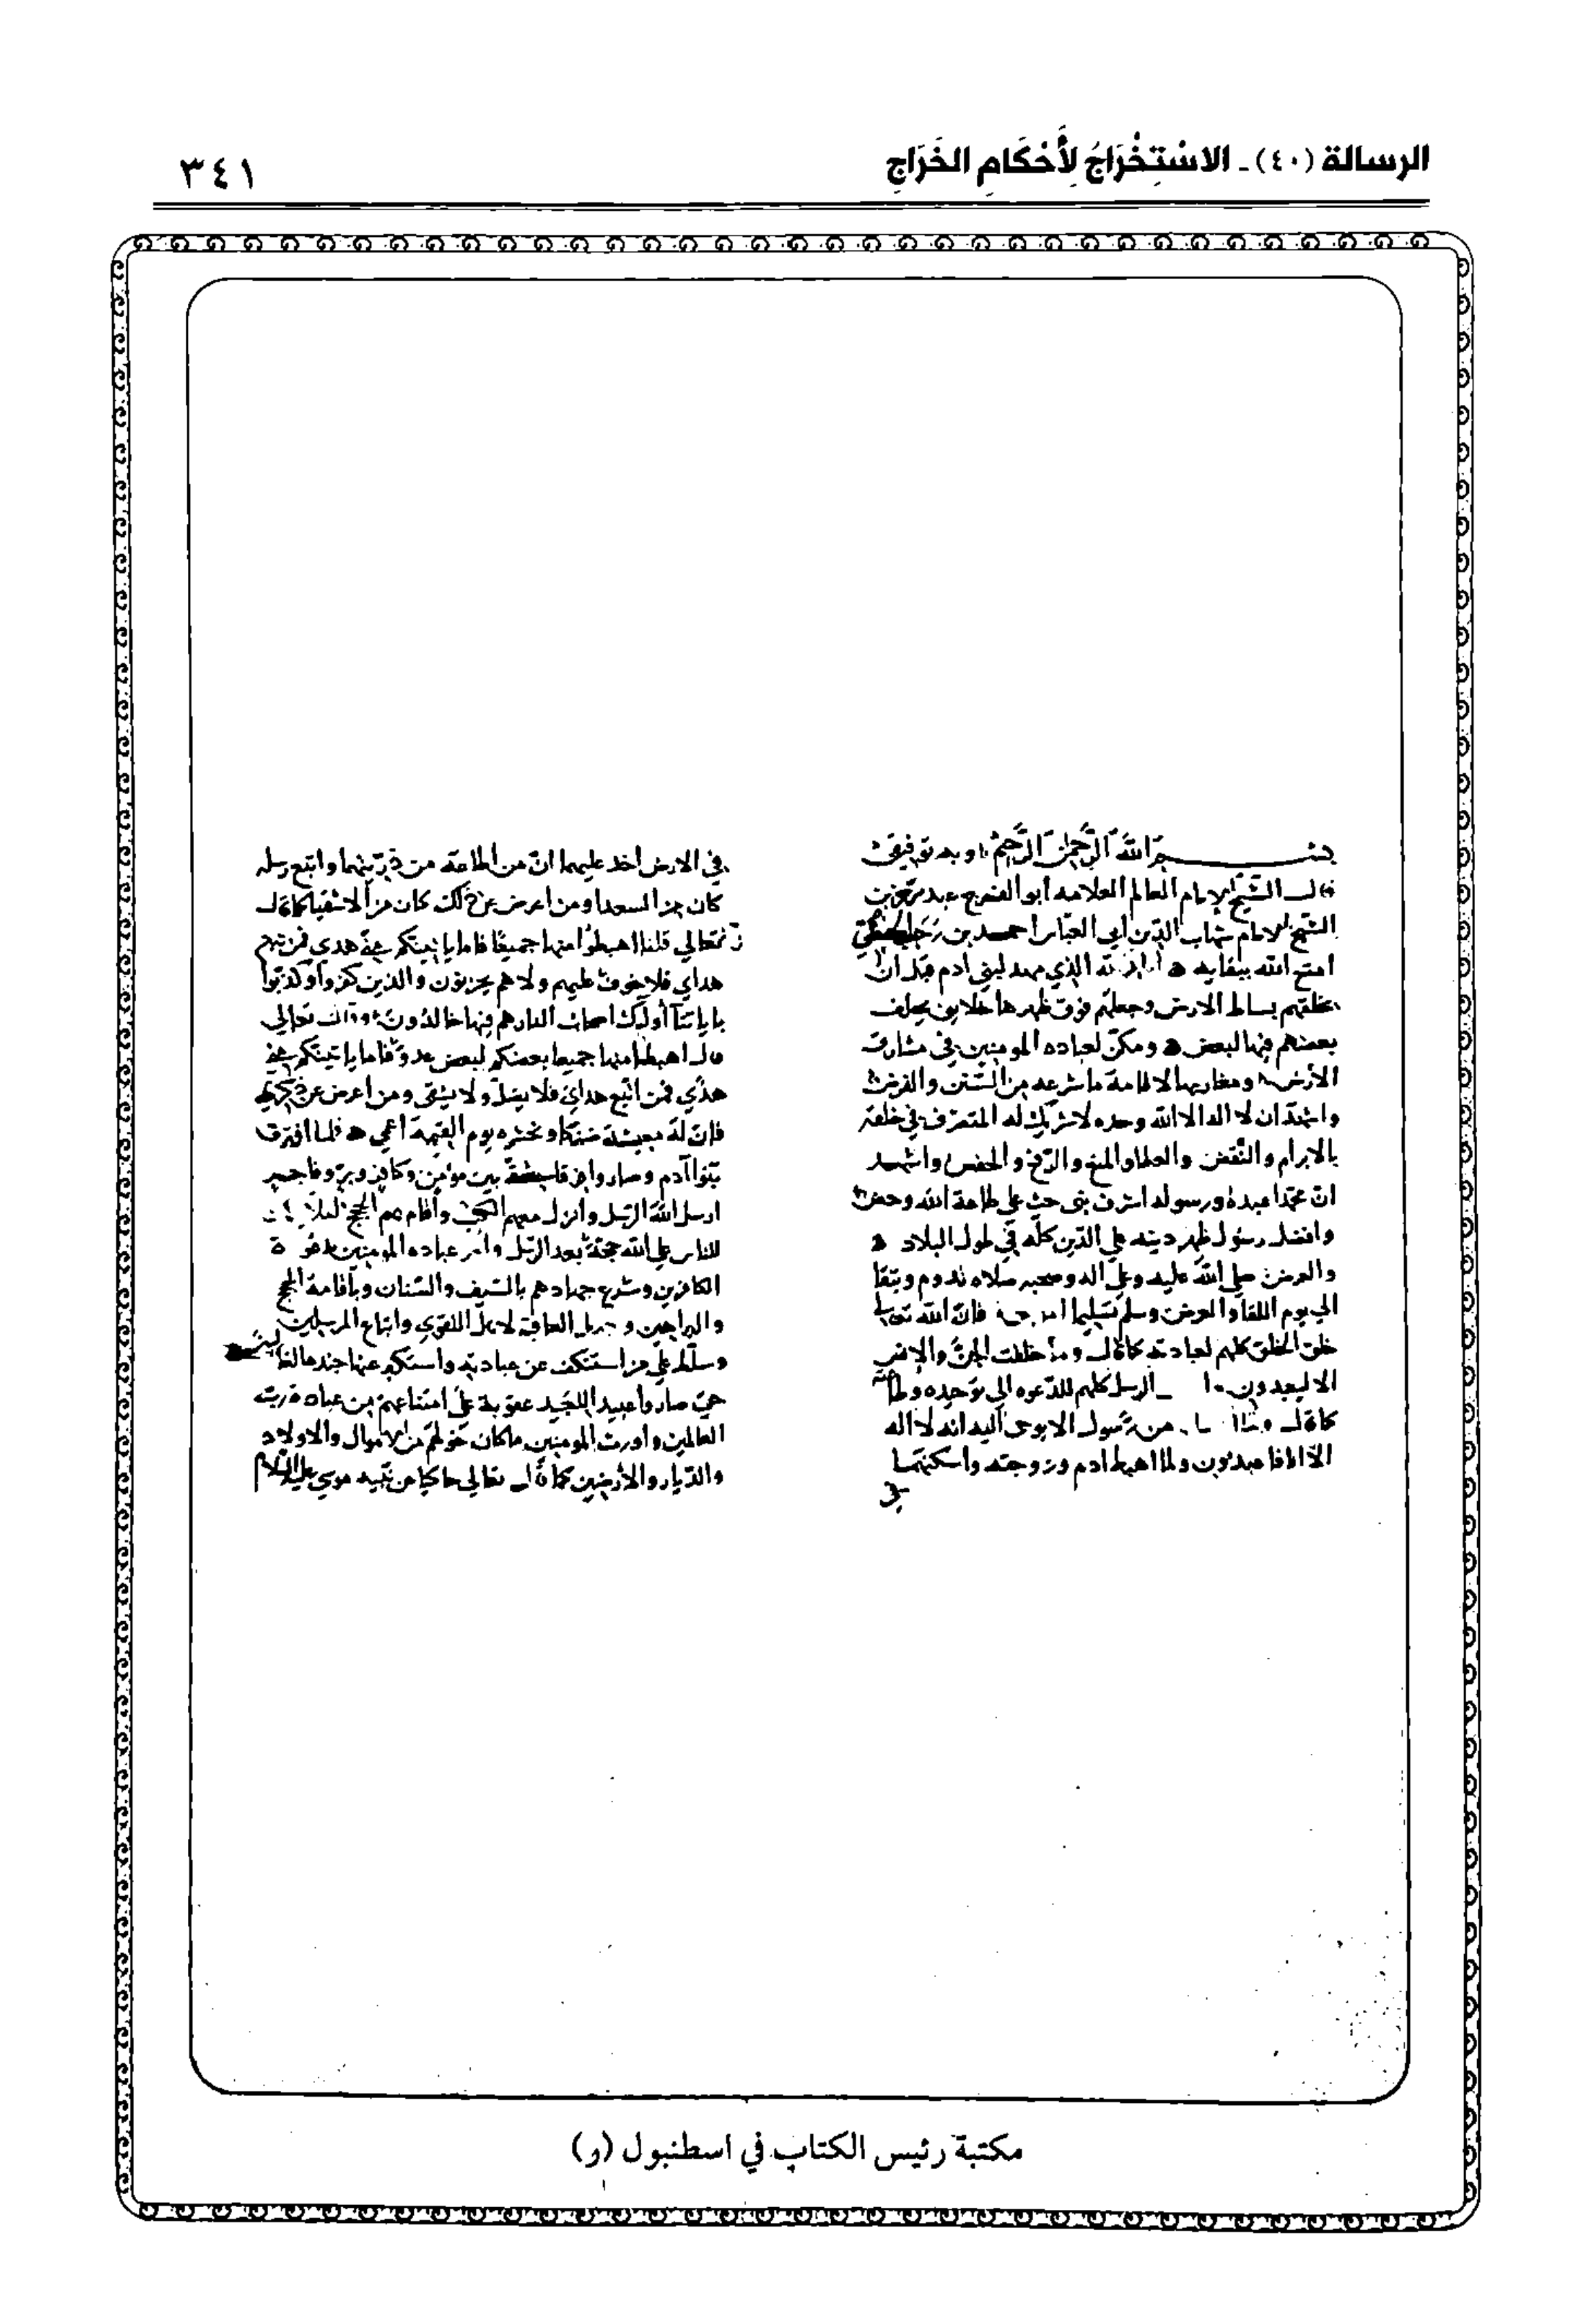 الرسالة (٤٠) ـ الاسْتِخْرَاجُ لِأَحْكَامِ الخَرَاجِ
٣٤١
بسم الله الرَّحمن الرَّحيم وبه توفيقي
قال الشيخ الامام العالم العلامه أبو الفرج عبد
الشيخ الامام شهاب الدين أبي العباس احمد بن رجب
امتع الله ببقايه الذي مهد لبني ادم قبل ان
يخلقهم بساط الارض وجعلهم فوق ظهرها خلايف يخلف
بعضهم فيها لبعض ومكن لعباده المومنين في مشارق
الأرض ومغاربها لاقامة ما شرعه من السُّنن والفرض
واشهد ان لا اله الا الله وحده لا شريك له المتصرف في خلقه
بالابرام والنَّقض والعطا والمنع والرفع والخفض واشهد
انّ محمّدا عبده ورسوله اشرف نبي حث على طاعة الله وحض
وافضل رسُول ظهر دينه على الدّين كلّه في طول البلاد
والعرض صلى الله عليه وعلى اله وصحبه صلاه تدوم وتبقا
الى يوم اللقا والعرض وسلم تسليما فانّ الله
خلق الخلق كلهم لعبادته كما قال وما خلقت الجنَّ والانس
الا ليعبدون الرسل كلهم للدّعوه الى توحيده
كما قال من رسُول الا يوحى اليه انه لا اله
الّا انا فاعبدون ولما اهبط ادم وزوجته واسكنهما
في
في الارض اخد عليهما انّ من اطاعه من ذريتهما واتبع رسله
كان من السعدا ومن اعرض عن ذلك كان من الاشقيا كما قال
تعالي قلنا اهبطُوا منها جميعًا فاما ياتينكم مني هدي فمن تبع
هداي فلا خوف عليهم ولا هم يحزنون والذين كفروا وكذبوا
باياتنا أولئك اصحاب النار هم فيها خالدُون وقال تعالي
قال اهبطا منها جميعا بعضكم لبعض عدوٌّ فاما ياتينكم مني
هدًي فمن اتبع هداي فلا يضلّ ولا يشقى ومن اعرض عن ذكري
فانّ لهُ معيشة ضنكا ونحشره يوم القيمة اعمي فلما افترق
بنوا آدم وصاروا فرقا بين مؤمن وكافر وبرّ وفاجر
ارسل الله الرّسل وانزل معهم الكتب وأقام بهم الحجج لئلا
للناس على الله حجّة بعد الرّسل وأمر عباده المومنين
الكافرين وشرع جهادهم بالسّيف والسّنان وبأقامة الحجج
والبراهين وجعل العاقبة لاهل التقوي واتباع المرسلين
وسلّط على من استنكف عن عبادته واستكبر عنها
حتى صاروا عبيد العبيد عقوبة على امتناعهم من عباده رب
العالمين واورث المومنين ما كان خولهم من الاموال والاولاد
والدّيار والأرضين كما قال تعالي حاكيا عن نبيه موسي عليه السَّلام
مكتبة رئيس الكتاب في اسطنبول (ر)